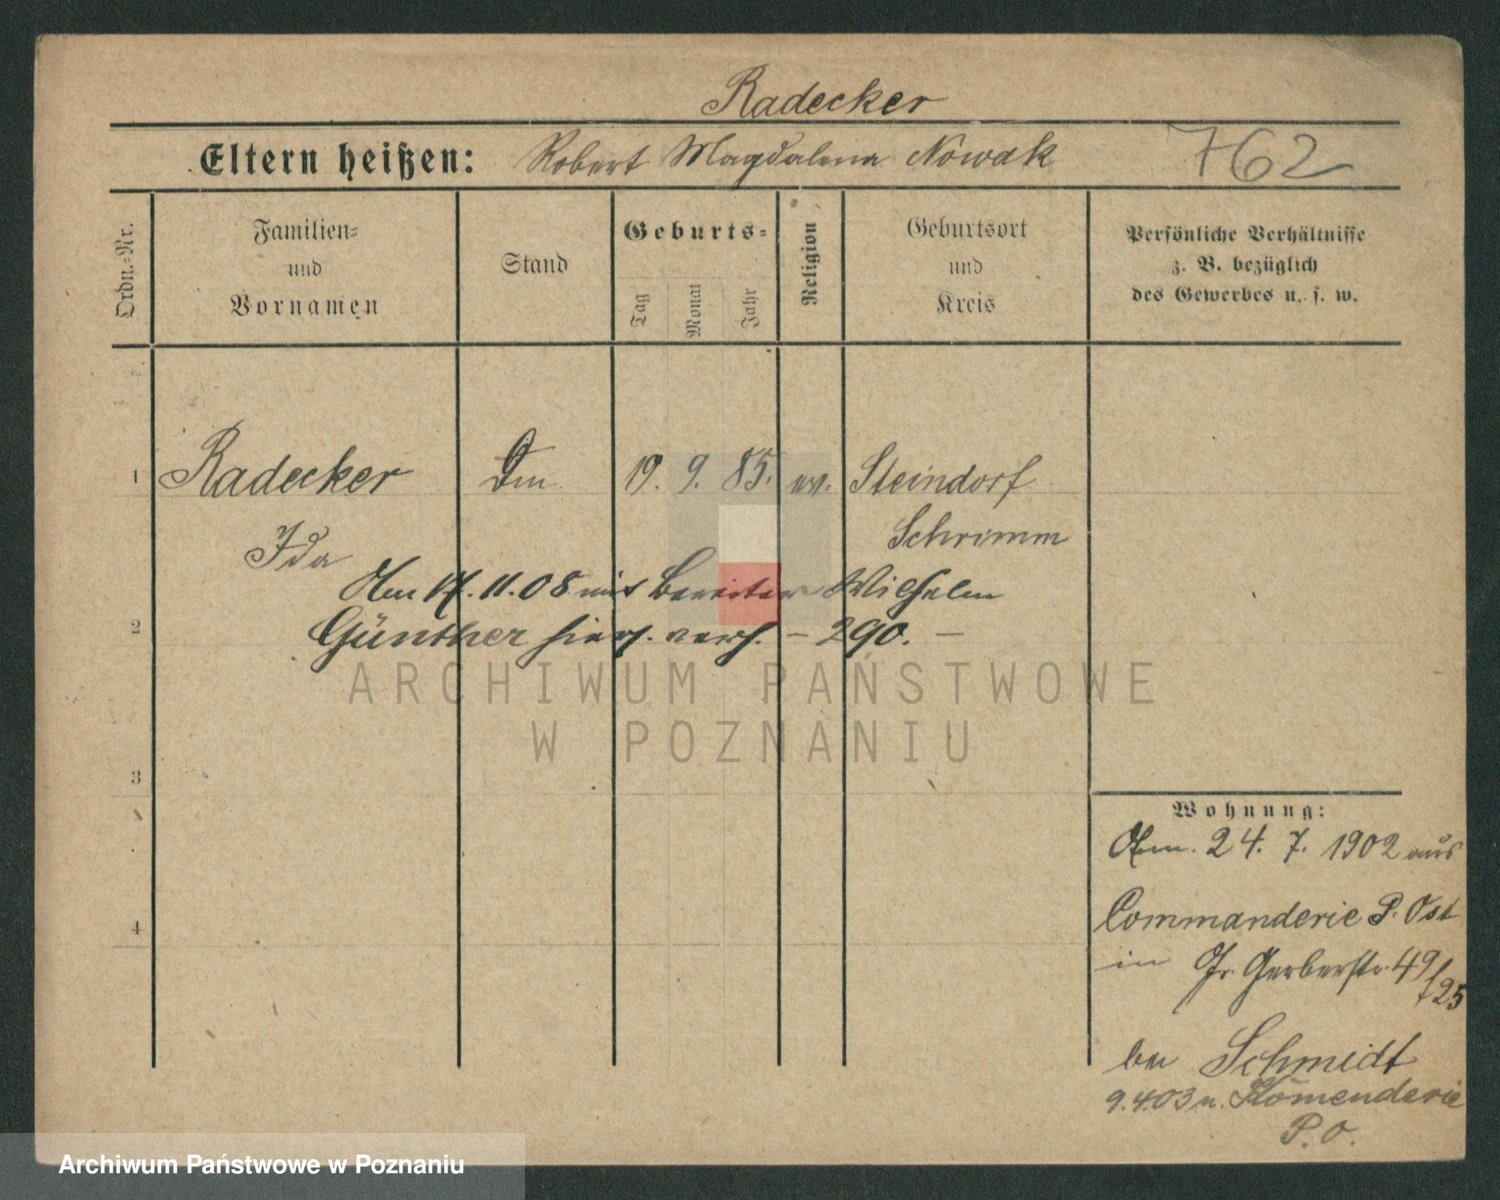 Radecker
Eltern heißen: Robert Magdalena Nowak 762
Ordn.-Nr.
Familien-
und
Vornamen
Stand
Geburts-
Tag Monat Jahr
Religion
Geburtsort
und
Kreis
Persönliche Verhältnisse
z. B. bezüglich
des Gewerbes u. s. w.
1 Radecker 19. 9. 85. ev. Steindorf
Ida Schrimm
Am 17. 11. 08 mit Bereiter Wilhelm
2 Günther hier. verh. – 290. –
3
4
Wohnung:
24. 7. 1902 aus
Commanderie P. Ost
in Gr. Gerberstr. 49/25
bei Schmidt
9.4.03 n. Komenderie
P. O.
ARCHIWUM PAŃSTWOWE
W POZNANIU
Archiwum Państwowe w Poznaniu